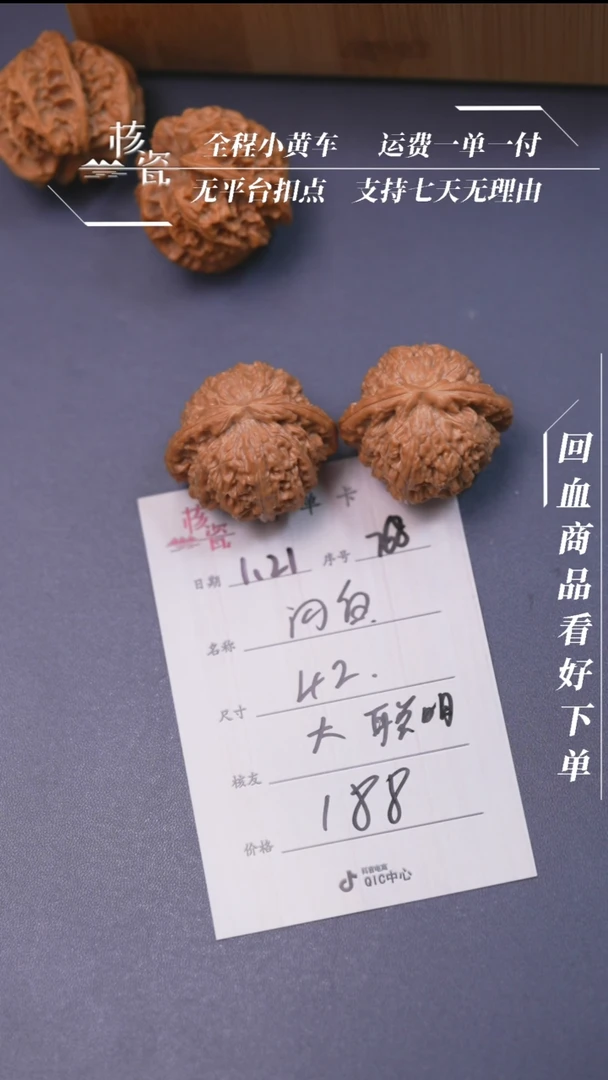 核瓷
全程小黄车 运费一单一付
无平台扣点 支持七天无理由
回血商品看好下单
核瓷 单卡
日期 1.21 序号 768
名称
尺寸 42.
核友 大联盟
价格 188
抖音电商
QIC中心